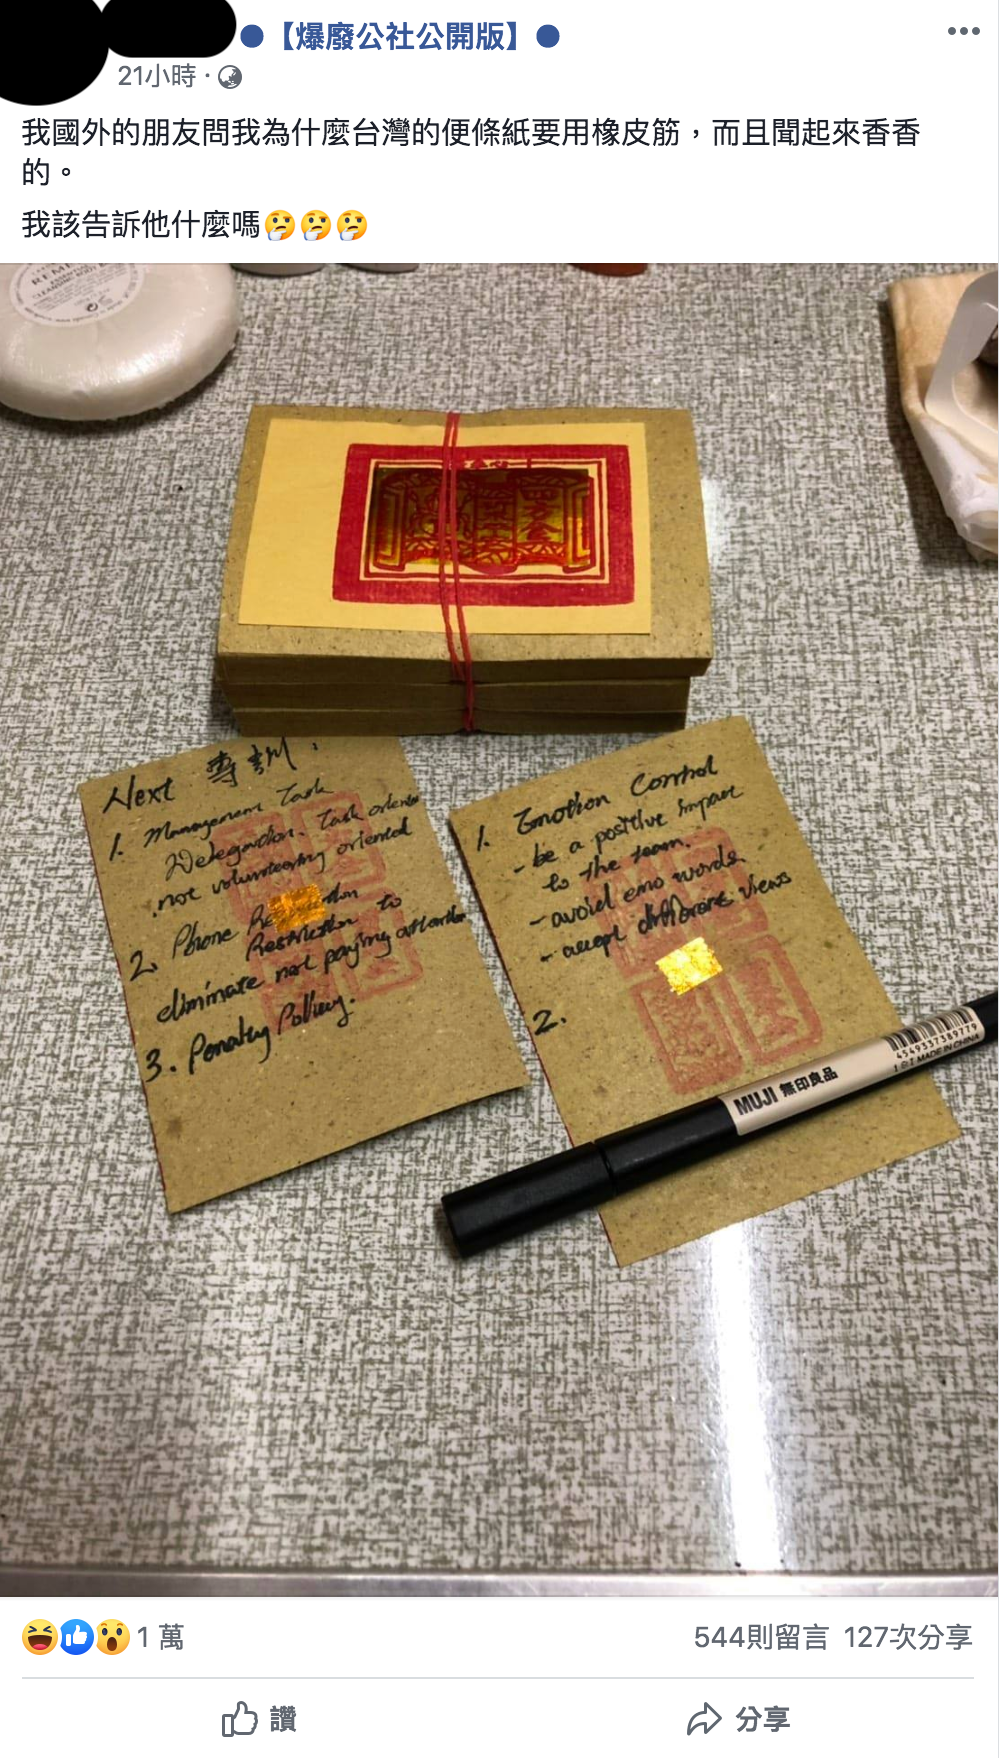 ●【爆廢公社公開版】●
21小時 ·
我國外的朋友問我為什麼台灣的便條紙要用橡皮筋，而且聞起來香香
的。
我該告訴他什麼嗎🤔🤔🤔
四方金
Next 專訓：
1. Management Task
Delegation. Task oriented
not volunteering oriented
2. Phone
Restriction to
eliminate not paying attention
3. Penalty Policy.
1. Emotion Control
- be a positive impact
to the team.
- avoid emo words
- accept different views
2.
MUJI 無印良品
4549337389779
MADE IN CHINA
1 萬
544則留言 127次分享
讚
分享